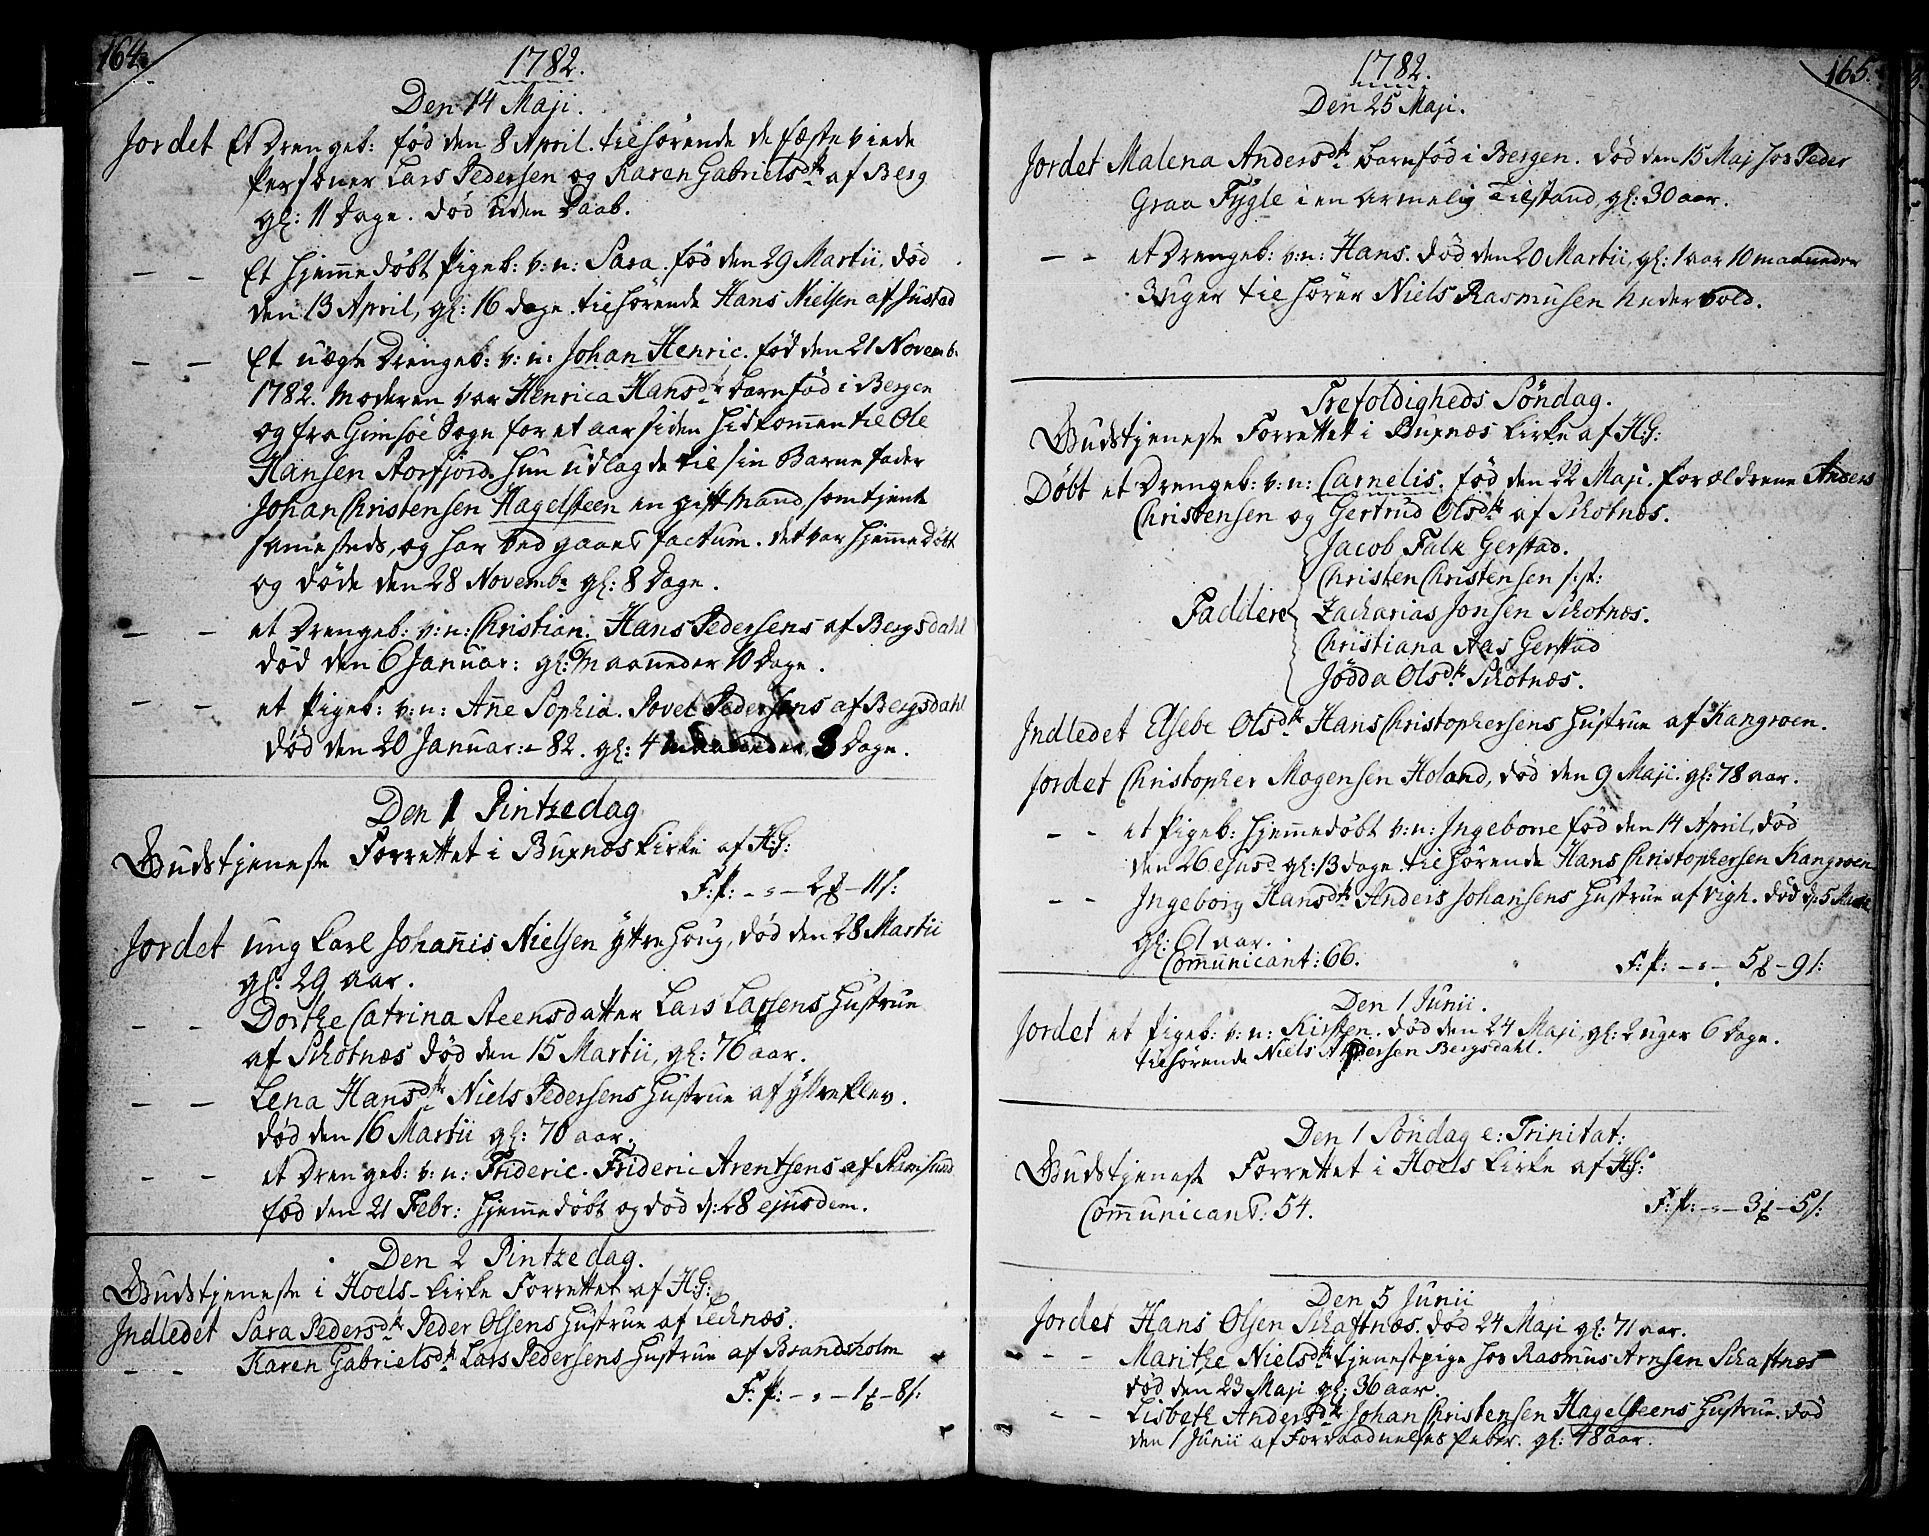 164.
1782.
Den 14 Maji.
Jordet Et Drengeb: fød den 8 April. tilhørende de fæsteviede
Personer Lars Pedersen og Karen Gabrielsdtr af Berg
gl: 11 Dage. død uden Daab.
— — Et hjemmedøbt Pigeb: v: n: Sara. fød den 29 Martii, død
den 13 April, gl: 16 dage. tilhørende Hans Nielsen af Justad
— — Et uægte Drengeb: v: n: Johan Henric. fød den 21 Novemb.
1782. Moderen var Henrica Hansdtr barnfød i Bergen
og fra Gimsøe Sogn for et aar siden hidkommen til Ole
Hansen Storfjord. hun udlagde til sin Barnefader
Johan Christensen Hagelsteen en gift Mand som tjente
sammesteds, og har vedgaaed factum. det var hjemmedøbt
og døde den 28 Novemb. gl: 8 Dage.
— — et Drengeb: v: n: Christian. Hans Pedersens af Bergsdahl
død den 6 Januar: gl: maaneder 10 Dage.
— — et Pigeb: v: n: Añe Sophia. Povel Pedersens af Bergsdahl
død den 20 Januar: 82. gl: 4 maaneder 3 Dage.
Den 1 Pintzedag
Gudstjeneste Forrettet i Buxnæs kirke af H: G:
F: P: — " — 2 — 11 s:
Jordet ung karl Johañis Nielsen Yttrehoug, død den 28 Martii
gl: 29 aar.
— — Dorthe Catrina Steensdatter Lars Lassens Hustrue
af Skotnæs død den 15 Martii, gl: 76 aar.
— — Lena Hansdtr Niels Pedersens Hustrue af Yttreklev.
død den 16 Martii gl: 70 aar.
— — et Drengeb: v: n: Frideric. Frideric Arentsens af
fød den 21 Febr: hjemmedøbt og død d: 28 ejusdem.
Den 2 Pintzedag.
Gudstjeneste i Hoels-kirke Forrettet af H: G:
Indledet Sara Pedersdtr Peder Olsens Hustrue af Lecknæs.
— — Karen Gabrielsdtr Lars Pedersens Hustrue af Brandsholm
F: P: — " — 1 — 8 s:
165.
1782.
Den 25 Maji.
Jordet Malena Andersdtr barnfød i Bergen. død den 15 Maj hos Peder
Graa Fygle i en armelig Tilstand, gl: 30 aar.
— — et Drengeb: v: n: Hans. død den 20 Martii, gl: 1 aar 10 maaneder
3 uger tilhører Niels Rasmusen Nedervold.
Trefoldigheds Søndag.
Gudstjeneste Forrettet i Buxnæs kirke af H: G:
Døbt et Drengeb: v: n: Carnelis. fød den 22 Maji. forældrene Anders
Christensen og Gertrud Olsdtr af Skotnæs.
Jacob Falk Gerstad.
Christen Christensen s: st:
Faddere Zacharias Jonsen Skotnæs.
Christiana Aas Gerstad
Jødda Olsdtr Skotnæs.
Indledet Elsebe Olsdtr Hans Christophersens Hustrue af Kangroen.
Jordet Christopher Mogensen Holand, død den 9 Maji. gl: 78 aar.
— — et Pigeb: hjemmedøbt v: n: Ingebore fød den 14 April, død
den 26 ejusd gl: 13 dage. tilhørende Hans Christophersen Kangroen
— — Ingeborg Hansdtr Anders Johansens Hustrue af Vigh. død d: 5
gl: 61 aar.
Com̃unicant: 66.
F: P: — " — 5 — 9 s:
Den 1 Junii.
Jordet et Pigeb: v: n: Kirsten. død den 24 Maji, gl: 2 uger 6 Dage.
tilhørende Niels Andersen Bergsdahl.
Den 1 Søndag e: Trinitat:
Gudstjeneste Forrettet i Hoels kirke af H: G:
Com̃unicant: 54.
F: P: — " — 3 — 5 s:
Den 5 Junii
Jordet Hans Olsen Skaftnæs. død 24 Maji gl: 71 aar.
— — Marithe Nielsdtr tjenestpige hos Rasmus Arnsen Skaftnæs
død den 23 Maji gl: 36 aar.
— — Lisbeth Andersdtr Johan Christensen Hagelsteens Hustrue. død
den 1 Junii af Forraadnelses feber. gl: 48 aar.